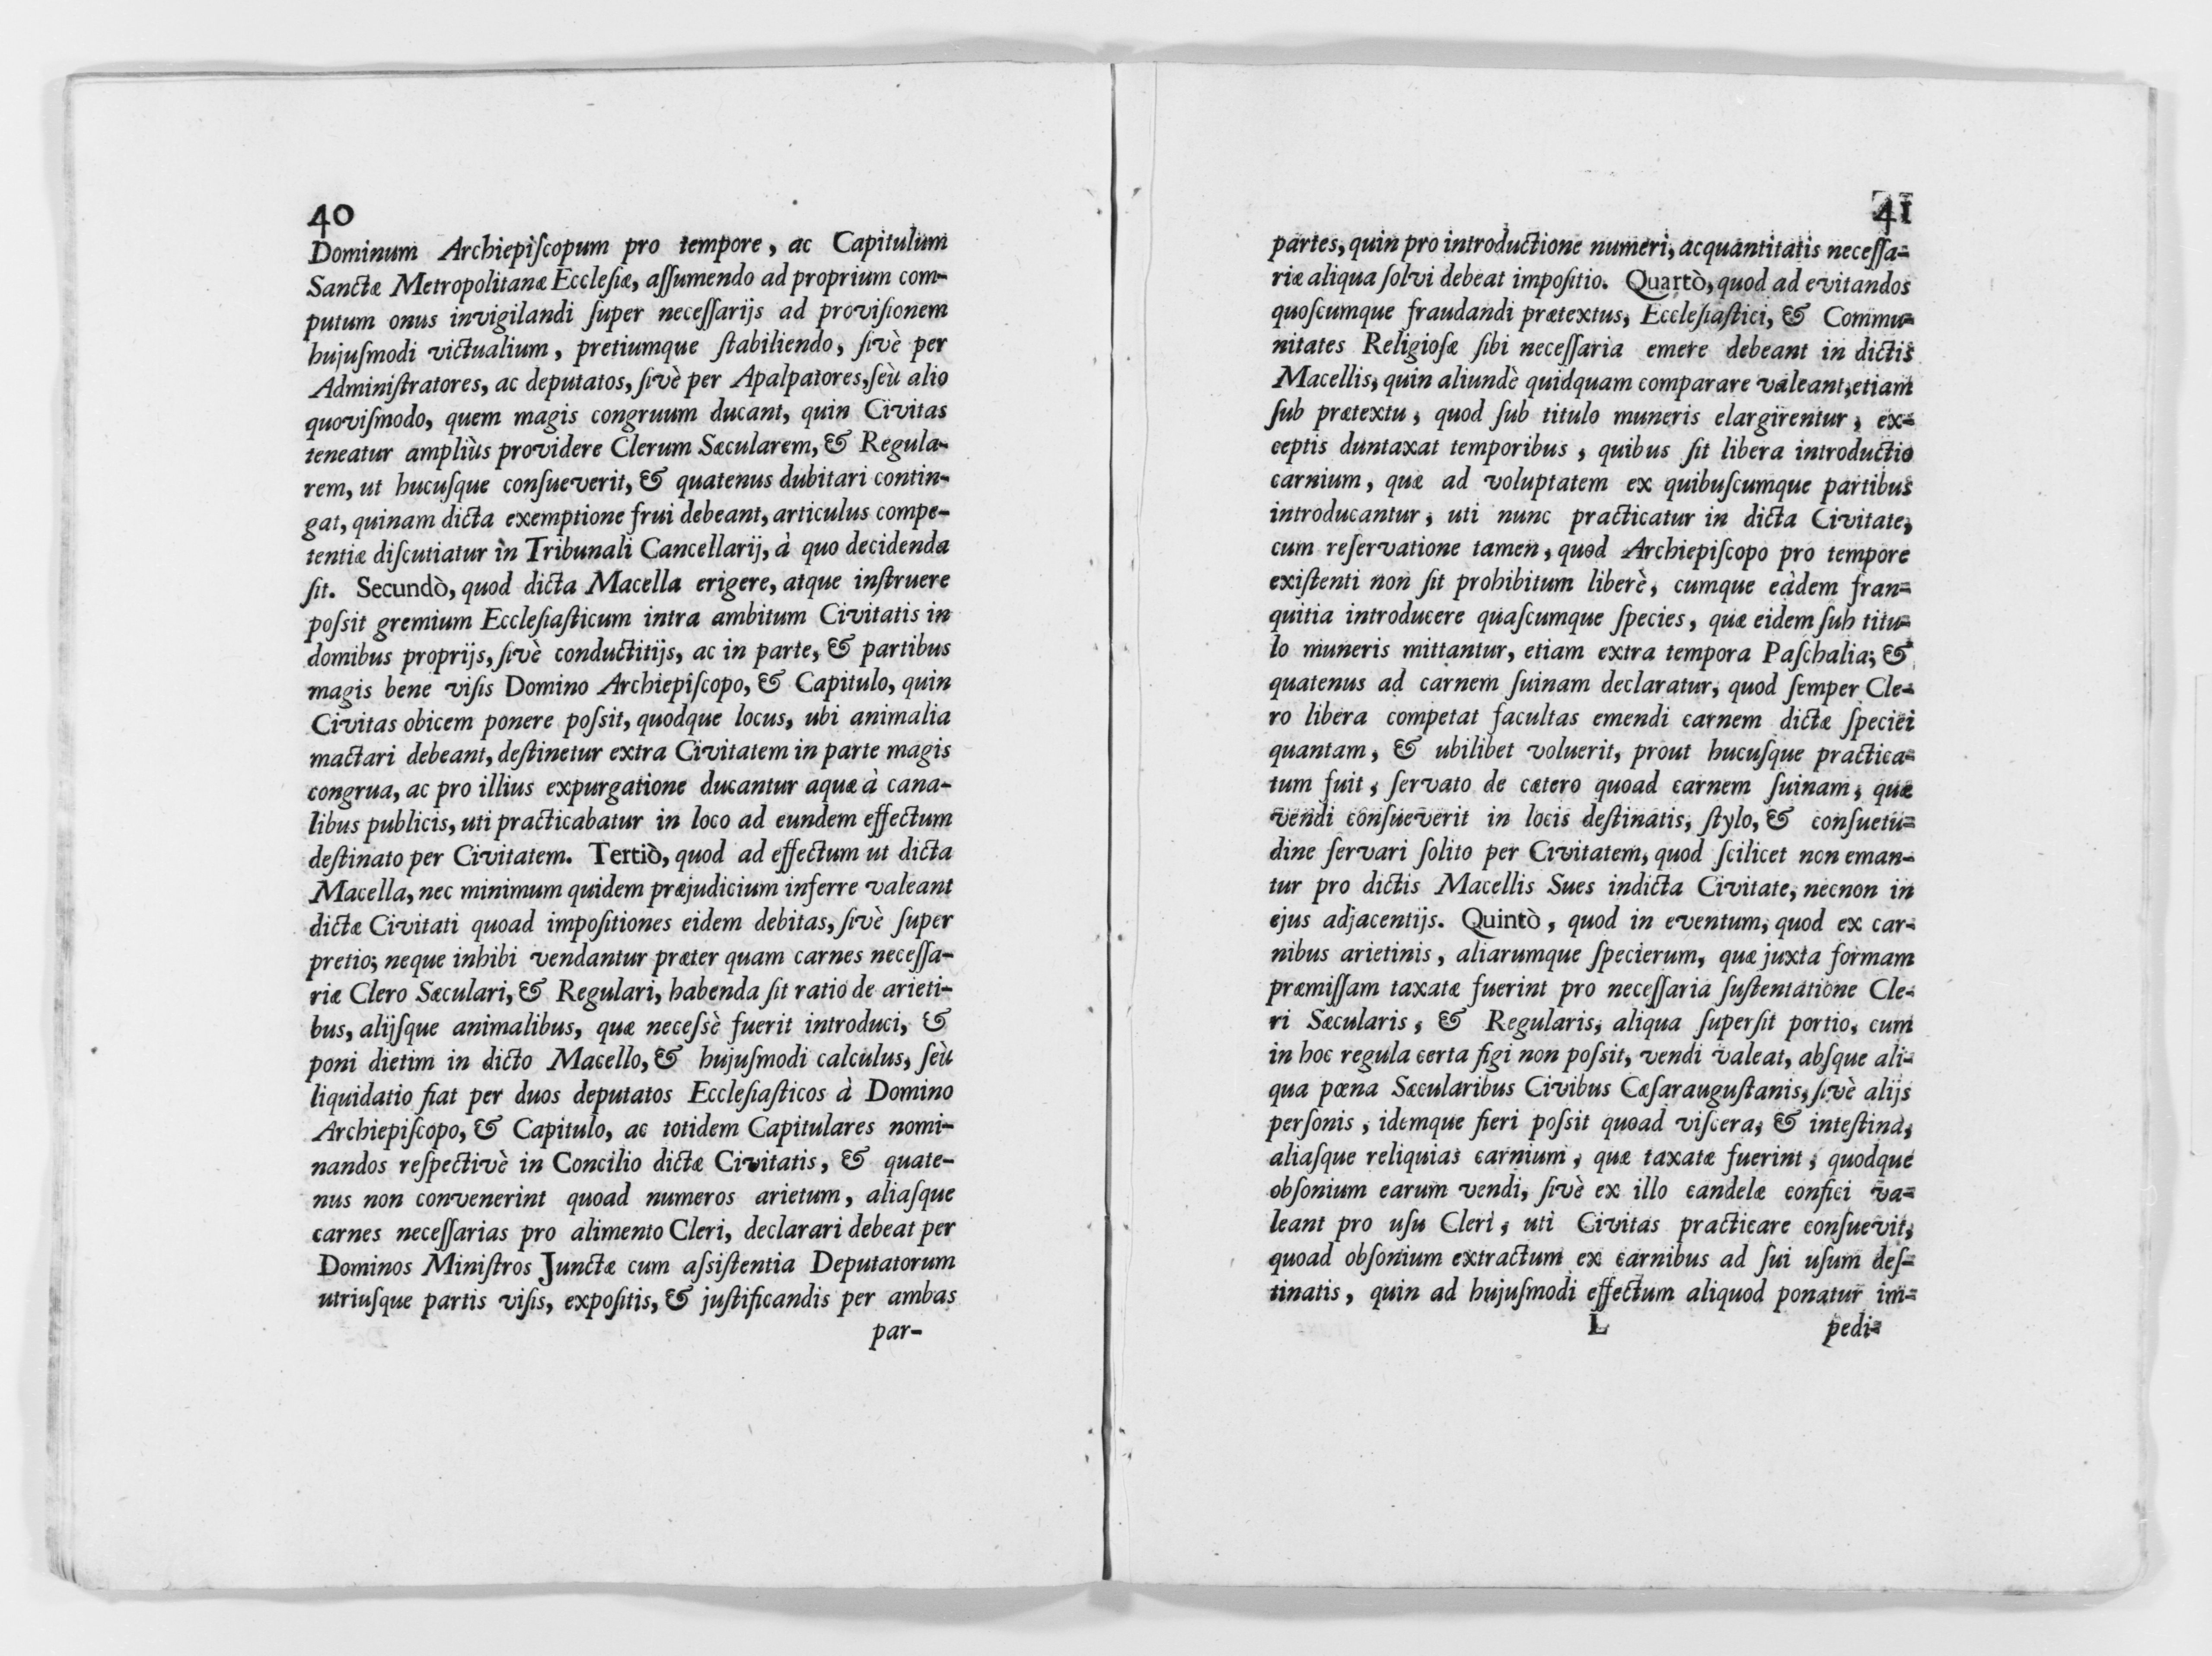 40
Dominum Archiepiſcopum pro tempore, ac Capitulum
Sanctæ Metropolitanæ Eccleſiæ, aſſumendo ad proprium com-
putum onus invigilandi ſuper neceſſarijs ad proviſionem
hujuſmodi victualium, pretiumque ſtabiliendo, ſivè per
Adminiſtratores, ac deputatos, ſivè per Apalpatores, ſeù alio
quoviſmodo, quem magis congruum ducant, quin Civitas
teneatur ampliùs providere Clerum Sæcularem, & Regula-
rem, ut hucuſque conſueverit, & quatenus dubitari contin-
gat, quinam dicta exemptione frui debeant, articulus compe-
tentiæ diſcutiatur in Tribunali Cancellarij, à quo decidenda
ſit. Secundò, quod dicta Macella erigere, atque inſtruere
poſsit gremium Eccleſiaſticum intra ambitum Civitatis in
domibus proprijs, ſivè conductitijs, ac in parte, & partibus
magis bene viſis Domino Archiepiſcopo, & Capitulo, quin
Civitas obicem ponere poſsit, quodque locus, ubi animalia
mactari debeant, deſtinetur extra Civitatem in parte magis
congrua, ac pro illius expurgatione ducantur aquæ à cana-
libus publicis, uti practicabatur in loco ad eundem effectum
deſtinato per Civitatem. Tertiò, quod ad effectum ut dicta
Macella, nec minimum quidem præjudicium inferre valeant
dictæ Civitati quoad impoſitiones eidem debitas, ſivè ſuper
pretio; neque inhibi vendantur præter quam carnes neceſſa-
riæ Clero Sæculari, & Regulari, habenda ſit ratio de arieti-
bus, alijſque animalibus, quæ neceſsè fuerit introduci, &
poni dietim in dicto Macello, & hujuſmodi calculus, ſeù
liquidatio fiat per duos deputatos Eccleſiaſticos à Domino
Archiepiſcopo, & Capitulo, ac totidem Capitulares nomi-
nandos reſpectivè in Concilio dictæ Civitatis, & quate-
nus non convenerint quoad numeros arietum, aliaſque
carnes neceſſarias pro alimento Cleri, declarari debeat per
Dominos Miniſtros Junctæ cum aſsiſtentia Deputatorum
utriuſque partis viſis, expoſitis, & juſtificandis per ambas
par-
41
partes, quin pro introductione numeri, ac quantitatis neceſſa-
riæ aliqua ſolvi debeat impoſitio. Quartò, quod ad evitandos
quoſcumque fraudandi prætextus, Eccleſiaſtici, & Commu-
nitates Religioſæ ſibi neceſſaria emere debeant in dictis
Macellis, quin aliundè quidquam comparare valeant, etiam
ſub prætextu, quod ſub titulo muneris elargirentur, ex-
ceptis duntaxat temporibus, quibus ſit libera introductio
carnium, quæ ad voluptatem ex quibuſcumque partibus
introducantur, uti nunc practicatur in dicta Civitate,
cum reſervatione tamen, quod Archiepiſcopo pro tempore
exiſtenti non ſit prohibitum liberè, cumque eàdem fran-
quitia introducere quaſcumque ſpecies, quæ eidem ſub titu-
lo muneris mittantur, etiam extra tempora Paſchalia; &
quatenus ad carnem ſuinam declaratur, quod ſemper Cle-
ro libera competat facultas emendi carnem dictæ ſpeciei
quantam, & ubilibet voluerit, prout hucuſque practica-
tum fuit, ſervato de cætero quoad carnem ſuinam, quæ
vendi conſueverit in locis deſtinatis, ſtylo, & conſuetu-
dine ſervari ſolito per Civitatem, quod ſcilicet non eman-
tur pro dictis Macellis Sues indicta Civitate, necnon in
ejus adjacentijs. Quintò, quod in eventum, quod ex car-
nibus arietinis, aliarumque ſpecierum, quæ juxta formam
præmiſſam taxatæ fuerint pro neceſſaria ſuſtentatione Cle-
ri Sæcularis, & Regularis, aliqua ſuperſit portio, cum
in hoc regula certa figi non poſsit, vendi valeat, abſque ali-
qua pœna Sæcularibus Civibus Cæſarauguſtanis, ſivè alijs
perſonis, idemque fieri poſsit quoad viſcera, & inteſtina,
aliaſque reliquias carnium, quæ taxatæ fuerint, quodque
obſonium earum vendi, ſivè ex illo candelæ confici va-
leant pro uſu Cleri, uti Civitas practicare conſuevit,
quoad obſonium extractum ex carnibus ad ſui uſum deſ-
tinatis, quin ad hujuſmodi effectum aliquod ponatur im-
L pedi-